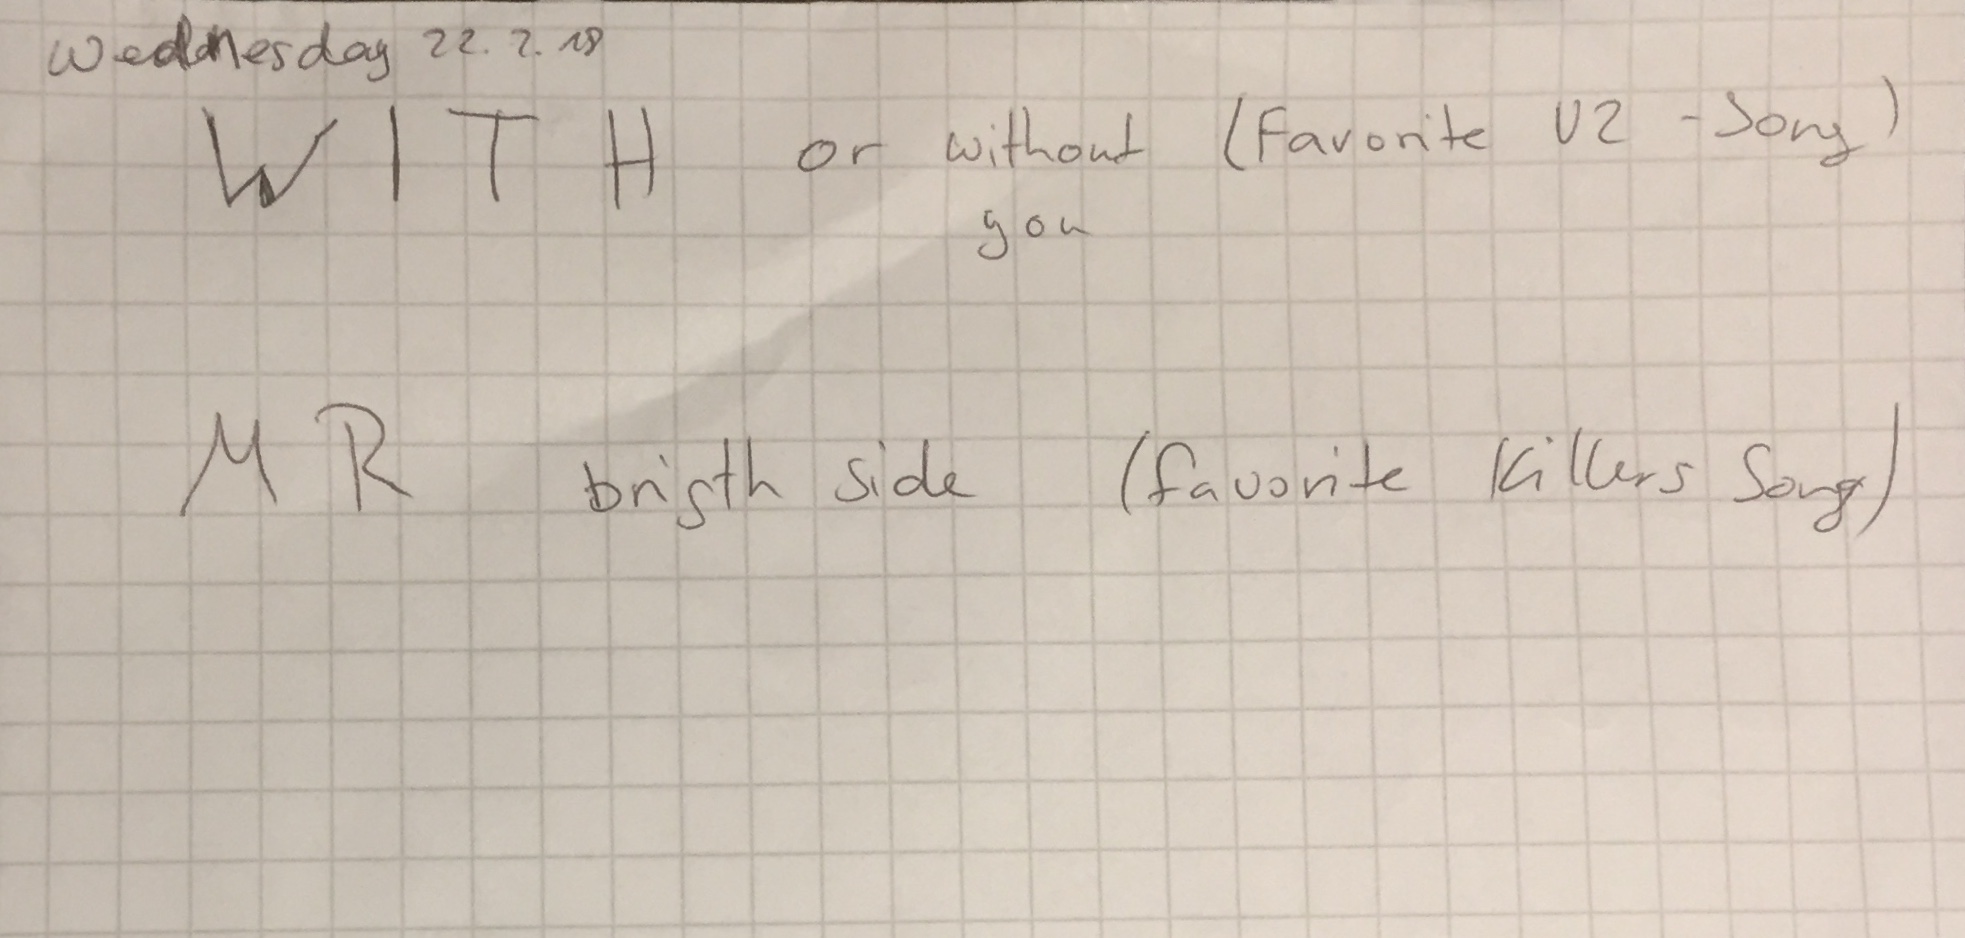 Wednesday 22.2.18
WITH or without (Favorite U2 -Song)
you
MR brigth side (favorite Killers Song)